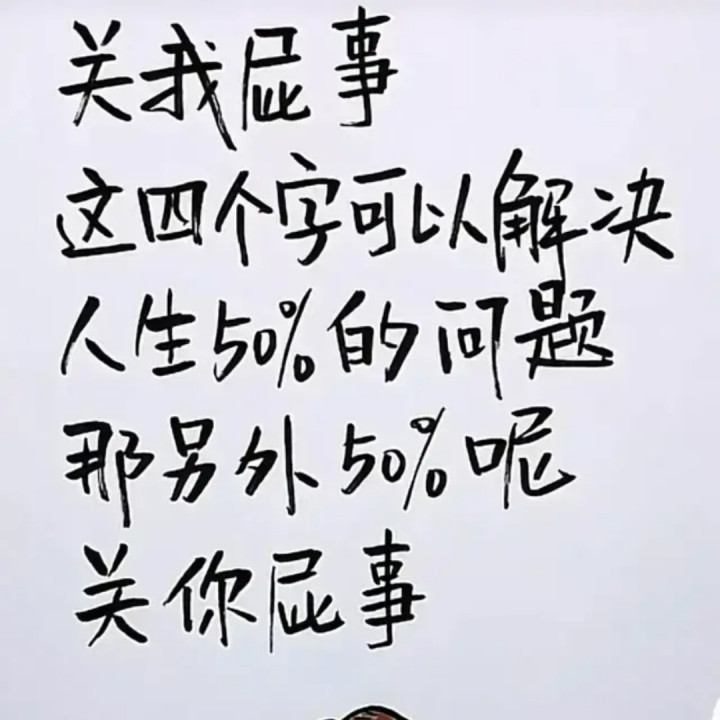 关我屁事
这四个字可以解决
人生50%的问题
那另外50%呢
关你屁事